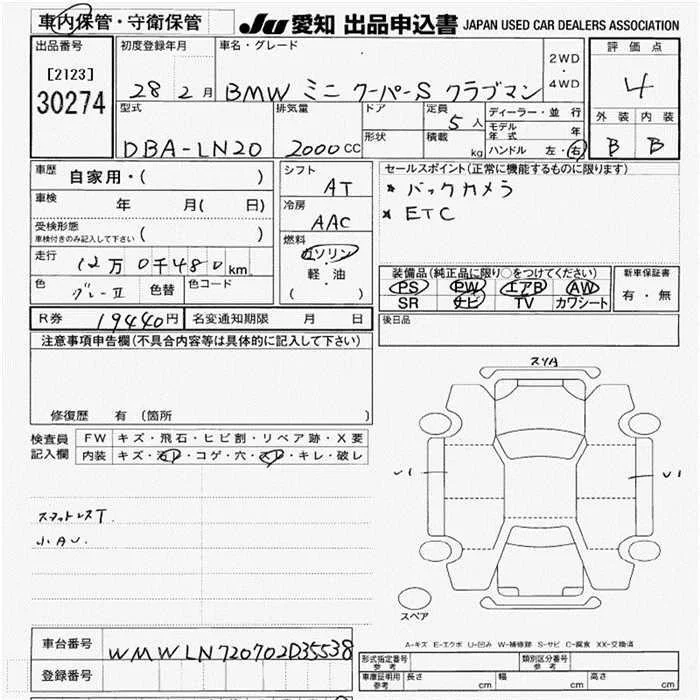 車内保管・守衛保管
JU 愛知 出品申込書 JAPAN USED CAR DEALERS ASSOCIATION
出品番号
[2123]
30274
初度登録年月
28 2月
車名・グレード
BMW ミニ クーパーS クラブマン
2WD
・
4WD
評価点
4
外装 内装
B B
型式
DBA-LN20
排気量
2000CC
ドア
形状
定員
5人
積載
kg
ディーラー・並行
モデル年式 年
ハンドル 左・右
車歴 自家用・( )
車検 年 月( 日)
受検形態
車検付きのみ記入して下さい ( )
走行 12万0千480km
色 グレーII 色替 色コード
シフト
AT
冷房
AAC
燃料
ガソリン
・
軽・油
( )
セールスポイント(正常に機能するものに限ります)
* バックカメラ
* ETC
装備品(純正品に限り○をつけてください)
PS PW エアB AW
SR ナビ TV カワシート
新車保証書
有・無
R券 19440円 名変通知期限 月 日
後日品
注意事項申告欄(不具合内容等は具体的に記入して下さい)
修復歴 有(箇所 )
検査員
記入欄
FW キズ・飛石・ヒビ割・リペア跡・X要
内装 キズ・汚レ・コゲ・穴・スレ・キレ・破レ
スマットレスT.
小AU.
スリA
U1
U1
スペア
A-キズ E-エクボ U-凹み W-補修跡 S-サビ C-腐食 XX-交換済
車台番号 WMWLN720702D35538
登録番号
形式指定番号
参考
類別区分番号
参考
車庫証明用
参考
長さ cm 幅 cm 高さ cm